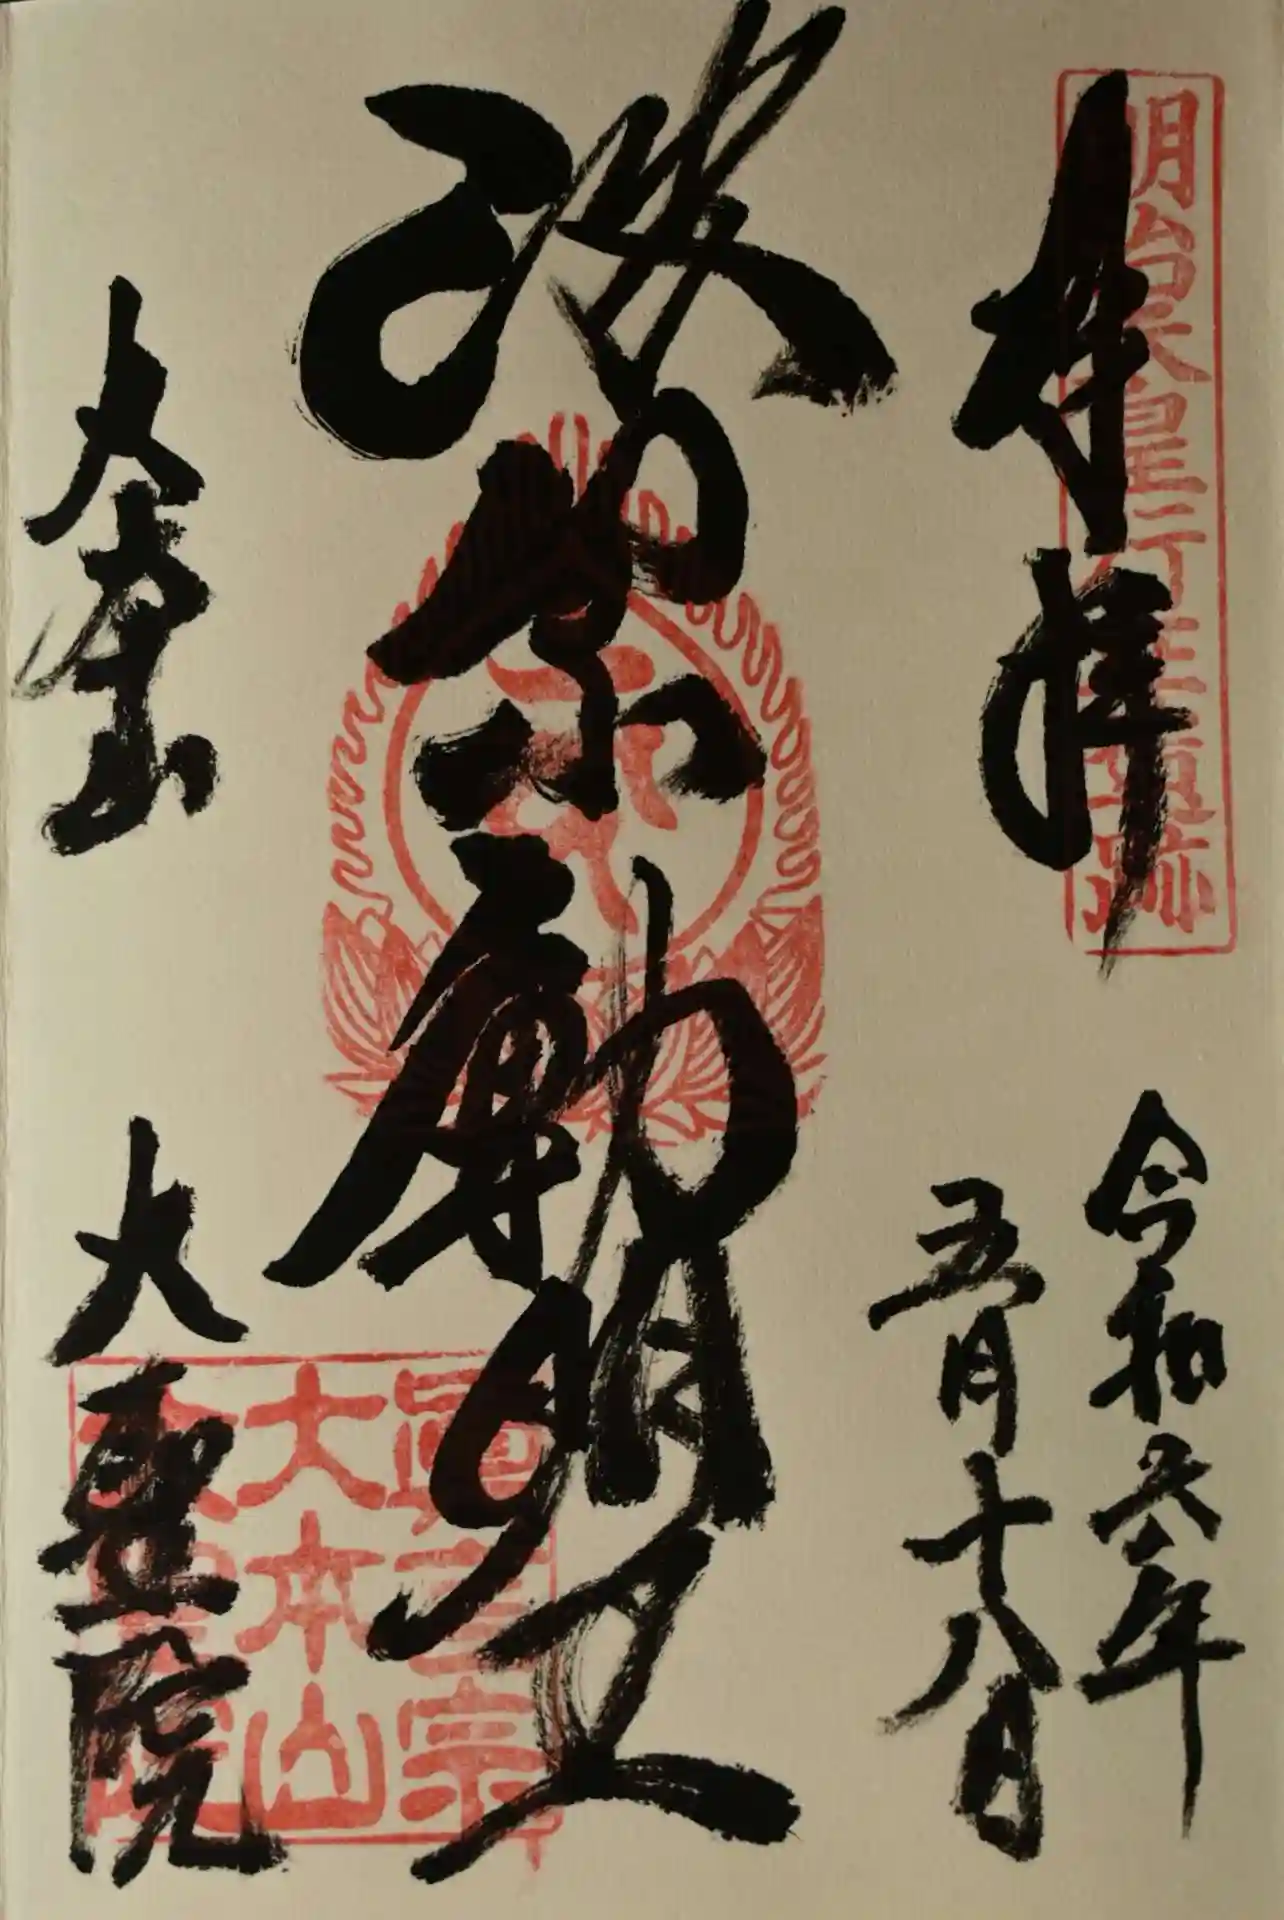 明治天皇行在
奉拝
令和六年
五月十八日
波切不動明王
大本山 大聖院
眞言宗
大本山
大聖院